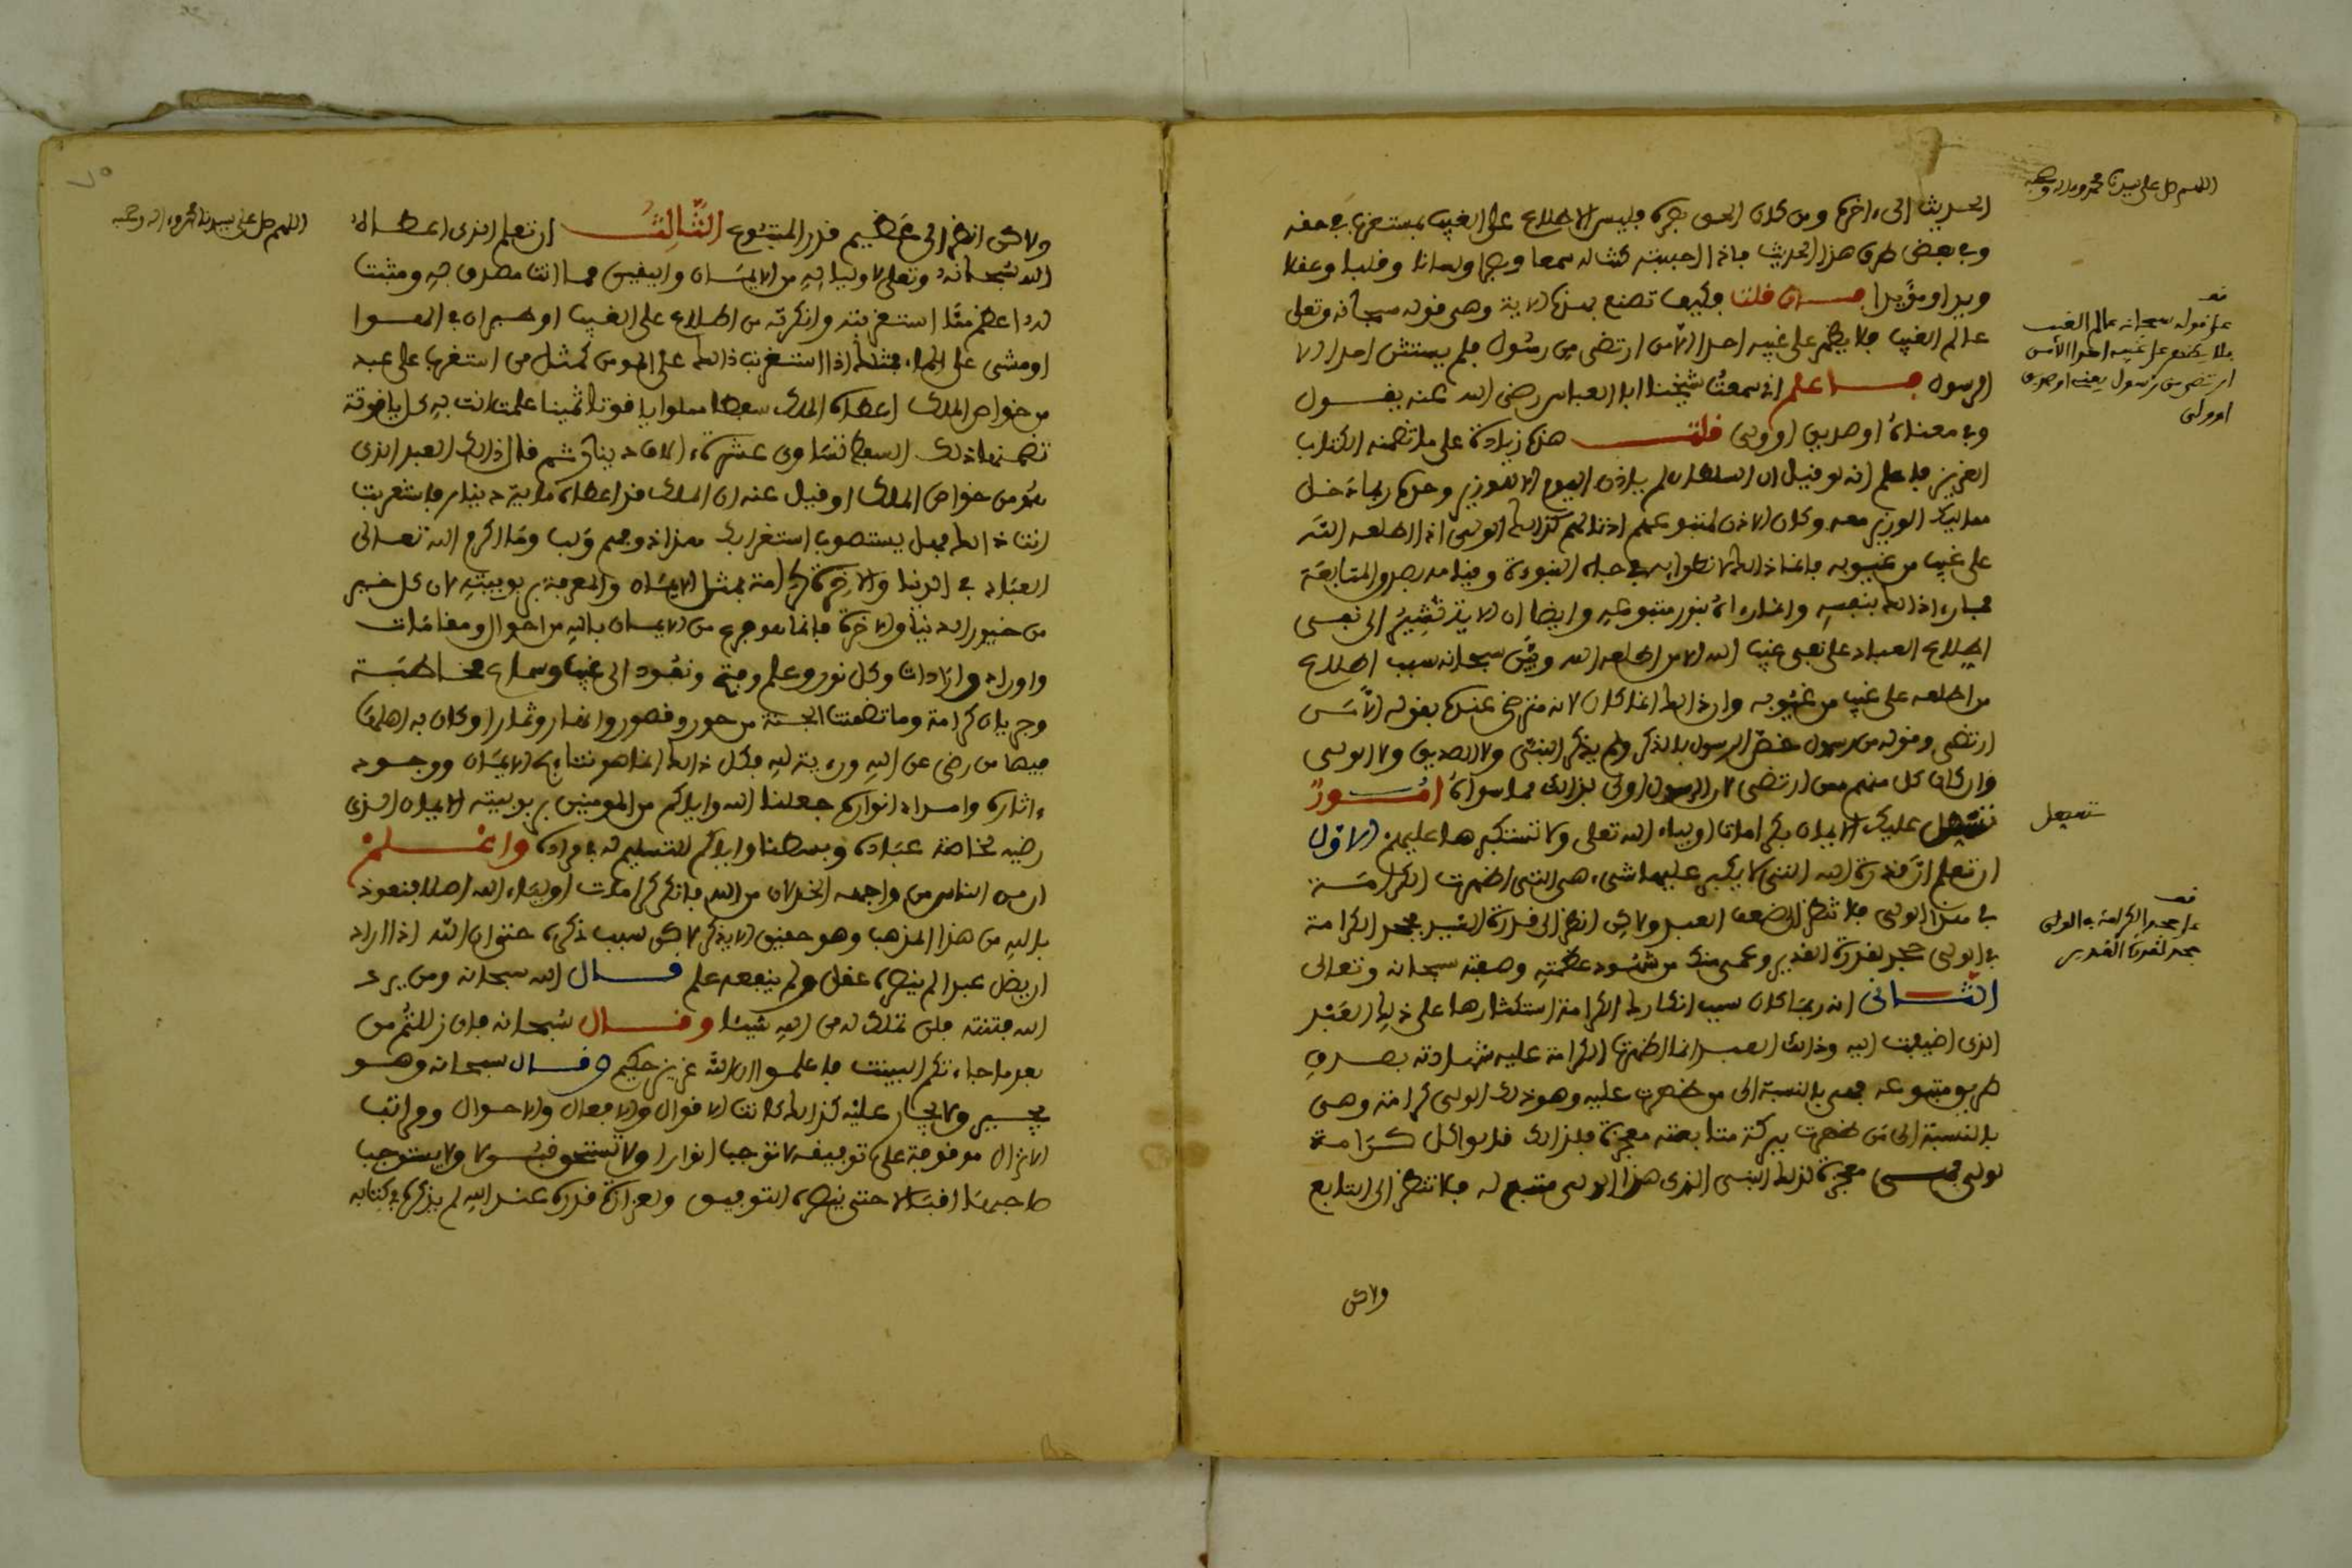 اللهم صل على سيدنا محمد وءاله وصحبه
الحديث الى ءاخره ومن كان الحق بصره فليس الاطلاع على الغيب بمستغرب في حقه
وفي بعض طرق هذا الحديث فاذا احببته كنت له سمعا وبصرا ولسانا وقلبا وعقلا
ويدا ومؤيدا فــان قلت وكيف تصنع بهذه الاية وهي قوله سبحانه وتعلى
عالم الغيب فلا يظهر على غيبه احدا الا من ارتضى من رسول فلم يستثن احدا الا
الرسول فــاعلم اني سمعت شيخنا ابا العباس رضي الله عنه يقــول
وفي معناه او صديق او ولي قلتــ هذه زيادة على ما تضمنه الكتاب
العزيز فاعلم انه لو قيل ان السلطان لم ياذن اليوم الا للوزير وحده ربما دخل
مماليك الوزير معه وكان الاذن لمتبوعهم اذنا لهم كذالك الولي اذا اطلعه الله
على غيب من غيوبه فانما ذالك لانطوائه في جاه النبوءة وقيامه بصدق المتابعة
فما رءا ذالك بنفسه وانما رءاه بنور متبوعه وايضا ان الاية تشير الى نفي
اطلاع العباد على غيب الله الا من اطلعه الله وبين سبحانه سبب اطلاع
من اطلعه على غيب من غيوبه وان ذالك انما كان لانه مرتضى عنده بقوله الا من
ارتضى وقوله من رسول خص الرسول بالذكر ولم يذكر النبي ولا الصديق ولا الولي
وان كان كل منهم ممن ارتضى لان الرسول اولى بذالك مما سواه امــور
تسهل عليك الايمان بكرامات اولياء الله تعلى ولا تستكبرها عليهم الاول
ان تعلم ان قدرة الله التي لا يكبر عليها شيء هي التي اظهرت الكرامــة
في هذا الولي فلا تنظر الى ضعف العبد ولاكن انظر الى قدرة السيد فجحد الكرامة
في الولي جحد لقدرة القدير وعمى منك من شهود عظمته وصفته سبحانه وتعالى
الثــاني انه ربما كان سبب انكارك الكرامة استكثارها على ذلك العبد
الذي اضيفت اليه وذالك العبد انما اظهرت الكرامة عليه شهادته بصدق
طريق متبوعه فهي بالنسبة الى من ظهرت عليه وهو ذلك الولي كرامة وهي
بالنسبة الى من ظهرت ببركة متابعته معجزة فلذالك قالوا كل كــرامة
لولي فهــي معجزة لذلك النبي الذي هذا الولي متبع له فلا تنظر الى التابع
ولاكن
على قوله سبحانه عالم الغيب
فلا يظهر على غيبه احدا الا من
ارتضى من رسول يعني او صديق
او ولي
تسهل
على جحد الكرامة في الولي
جحد لقدرة القدير
اللهم صل على سيدنا محمد وءاله وصحبه
ولاكن انظر الى عظيم قدر المتبوع الثالثــ ان تعلم الذي اعطاه
الله سبحانه وتعلى لاوليائه من الايمان واليقين مما انت مصدق به ومثبت
له اعظم مما استغربته وانكرته من اطلاع على الغيب او طيران في الهــوا
او مشي على الماء فمثلك اذا استغربت ذالك على المومن كمثل من استغرب على عبد
من خواص الملك اعطاه الملك سفطا مملوا ياقوتا ثمينا علمت انت به كل ياقوتة
تضمنها ذلك السفط تساوي عشرة ءالاف دينار ثم قال ذالك العبد الذي
هو من خواص الملك او قيل عنه ان الملك قد اعطاه ماية دينار فاستغربت
انت ذالك فهل يستصوب استغرابك هذا ذو فهم ولب وما اكرم الله تعــالى
العباد في الدنيا والاخرة كرامة بمثل الايمان والمعرفة بربوبيته لان كل خير
من خيور الدنيا والاخرة فانما هو فرع عن الايمان بالله من احوال ومقامات
واوراد وارادات وكل نور وعلم وفتح ونفوذ الى غيب وسماع مخــاطبــة
وجريان كرامة وما تضمنت الجــنة من حور وقصور وانهار وثمار او كان به اهلها
فيها من رضى عن الله ورءية لله فكل ذالك انما هو نتائج الايمــان ووجــود
ءاثاره وامداد انواره جعلنا الله واياكم من المومنين بربوبيته الايمان الذي
رضيه لخاصة عباده وبسطنا واياكم للتسليم له في مراده واعلــم
ان من الناس من واجهه الخذلان من الله فانكر كرامات اولياء الله اصلا فنعوذ
بالله من هذا المذهب وهو حقيق الا يذكر لاكن سبب ذكره حتى ان الله اذا اراد
ان يضل عبدا لم ينصره عقل ولم ينفعه علم قــال الله سبحانه ومن يرد
الله فتنته فلن تملك له من الله شيئا وقــال سبحانه فان زللتم من
بعد ما جاءتكم البينت فاعلمــوا ان الله عزيز حكيم وقــال سبحانه وهــو
يجــير ولا يجار عليه كذالك كانت الاقوال والافعال والاحوال ومراتب
الانزال موقوفة على توفيقه لا توجب انوارا ولا تستحق قبــولا ولا يستوجب
صاحبها اقبالا حتى ينصره التوفيق ولعزازة قدره عند الله لم يذكره في كتابه